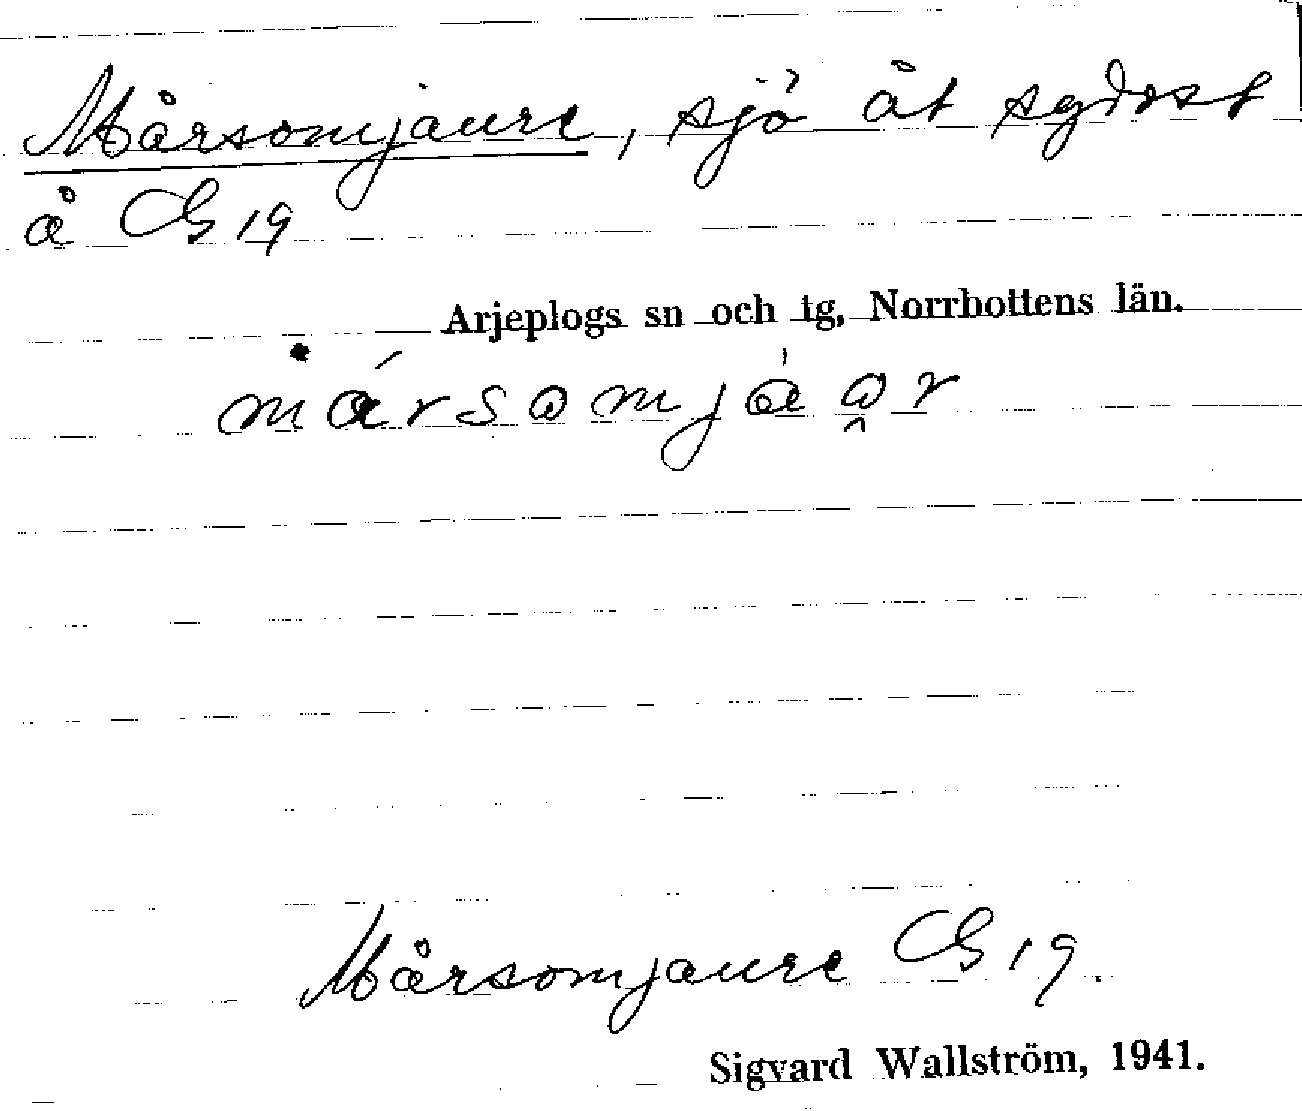 Mårsomjaure, sjö åt sydost
å G 19
Arjeplogs sn och tg, Norrbottens län.
mársomjáar
Mårsomjaure G 19.
Sigvard Wallström, 1941.